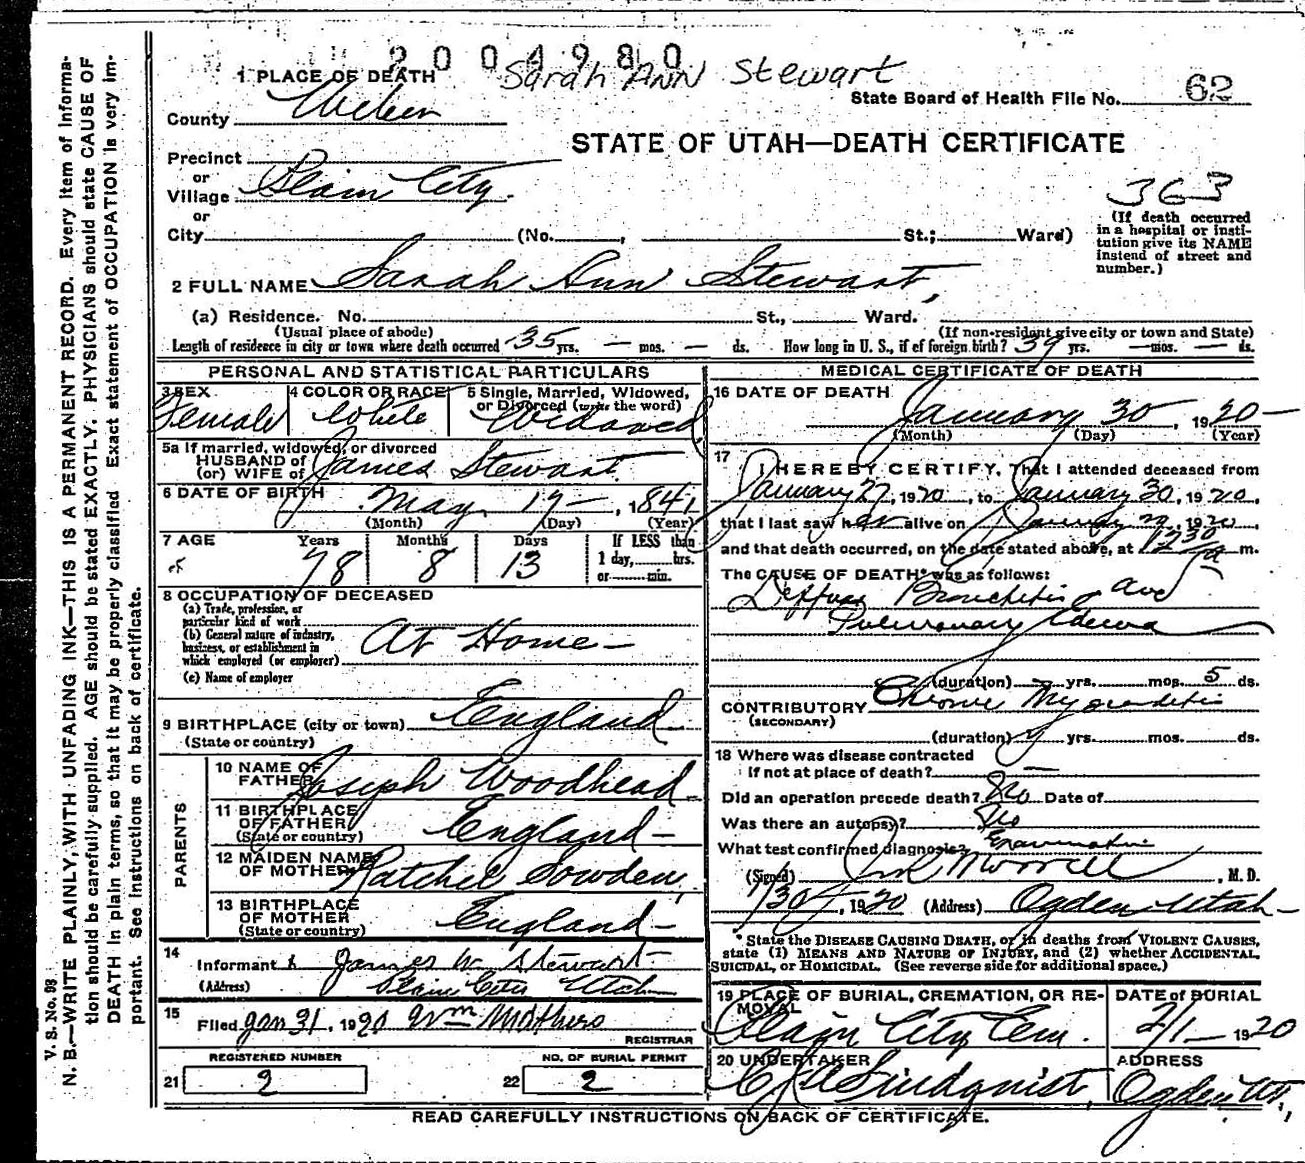 2004980
Sarah Ann Stewart
1 PLACE OF DEATH
State Board of Health File No. 62
County Weber
STATE OF UTAH—DEATH CERTIFICATE
Precinct
or
Village Plain City.
363
or
City (No. , St.; Ward)
(If death occurred
in a hospital or insti-
tution give its NAME
instead of street and
number.)
2 FULL NAME Sarah Ann Stewart,
(a) Residence. No. St., Ward.
(Usual place of abode) (If non-resident give city or town and State)
Length of residence in city or town where death occurred 35 yrs. — mos. — ds. How long in U. S., if of foreign birth? 39 yrs. — mos. — ds.
PERSONAL AND STATISTICAL PARTICULARS
3 SEX
Female
4 COLOR OR RACE
White
5 Single, Married, Widowed,
or Divorced (write the word)
Widowed
5a If married, widowed, or divorced
HUSBAND of
(or) WIFE of James Stewart
6 DATE OF BIRTH May 17—, 1841
(Month) (Day) (Year)
7 AGE Years Months Days If LESS than
78 8 13 1 day, hrs.
or min.
8 OCCUPATION OF DECEASED
(a) Trade, profession, or
particular kind of work
(b) General nature of industry,
business, or establishment in
which employed (or employer)
At Home—
(c) Name of employer
9 BIRTHPLACE (city or town) England
(State or country)
PARENTS
10 NAME OF
FATHER Joseph Woodhead
11 BIRTHPLACE
OF FATHER England—
(State or country)
12 MAIDEN NAME
OF MOTHER Ratchel Sowden,
13 BIRTHPLACE
OF MOTHER England—
(State or country)
14
Informant James W. Stewart
(Address) Plain City Utah
15
Filed Jan 31, 1920 Wm Mothers
REGISTRAR
REGISTERED NUMBER NO. OF BURIAL PERMIT
21 2 22 2
MEDICAL CERTIFICATE OF DEATH
16 DATE OF DEATH
January 30, 1920—
(Month) (Day) (Year)
17
I HEREBY CERTIFY, That I attended deceased from
January 27, 1920, to January 30, 1920,
that I last saw her alive on January 29, 1920,
and that death occurred, on the date stated above, at 1230 a m.
The CAUSE OF DEATH* was as follows:
Diffuse Bronchitis and
Pulmonary Edema
(duration) yrs. mos. 5 ds.
CONTRIBUTORY Chronic Myocarditis
(SECONDARY)
(duration) yrs. mos. ds.
18 Where was disease contracted
if not at place of death? —
Did an operation precede death? No Date of
Was there an autopsy? No
What test confirmed diagnosis? Examination
(Signed) Morrell, M. D.
1/30, 1920 (Address) Ogden Utah—
*State the DISEASE CAUSING DEATH, or in deaths from VIOLENT CAUSES,
state (1) MEANS AND NATURE OF INJURY, and (2) whether ACCIDENTAL
SUICIDAL, or HOMICIDAL. (See reverse side for additional space.)
19 PLACE OF BURIAL, CREMATION, OR RE-
MOVAL
Plain City Cem.
DATE of BURIAL
2/1—1920
20 UNDERTAKER
Lindquist,
ADDRESS
Ogden Ut.,
READ CAREFULLY INSTRUCTIONS ON BACK OF CERTIFICATE.
V. S. No. 98
N. B.—WRITE PLAINLY, WITH UNFADING INK—THIS IS A PERMANENT RECORD. Every item of informa-
tion should be carefully supplied. AGE should be stated EXACTLY. PHYSICIANS should state CAUSE OF
DEATH in plain terms, so that it may be properly classified. Exact statement of OCCUPATION is very im-
portant. See instructions on back of certificate.